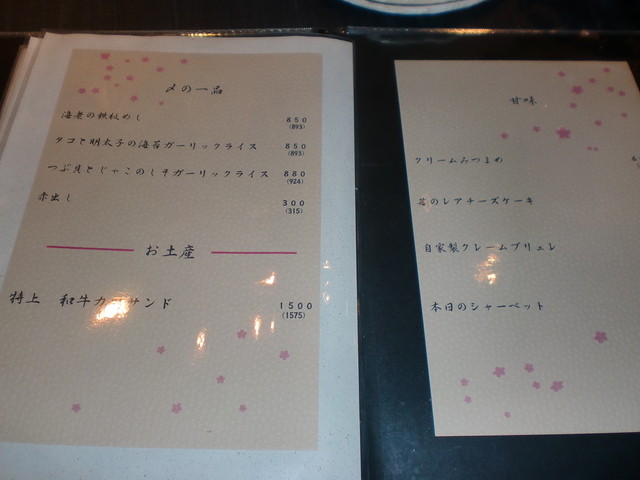 〆の一品
海老の鉄板めし 850
(893)
タコと明太子の海苔ガーリックライス 850
(893)
つぶ貝とじゃこのしそガーリックライス 880
(924)
赤出し 300
(315)
お土産
特上 和牛カツサンド 1500
(1575)
甘味
クリームみつまめ
苺のレアチーズケーキ
自家製クレームブリュレ
本日のシャーベット